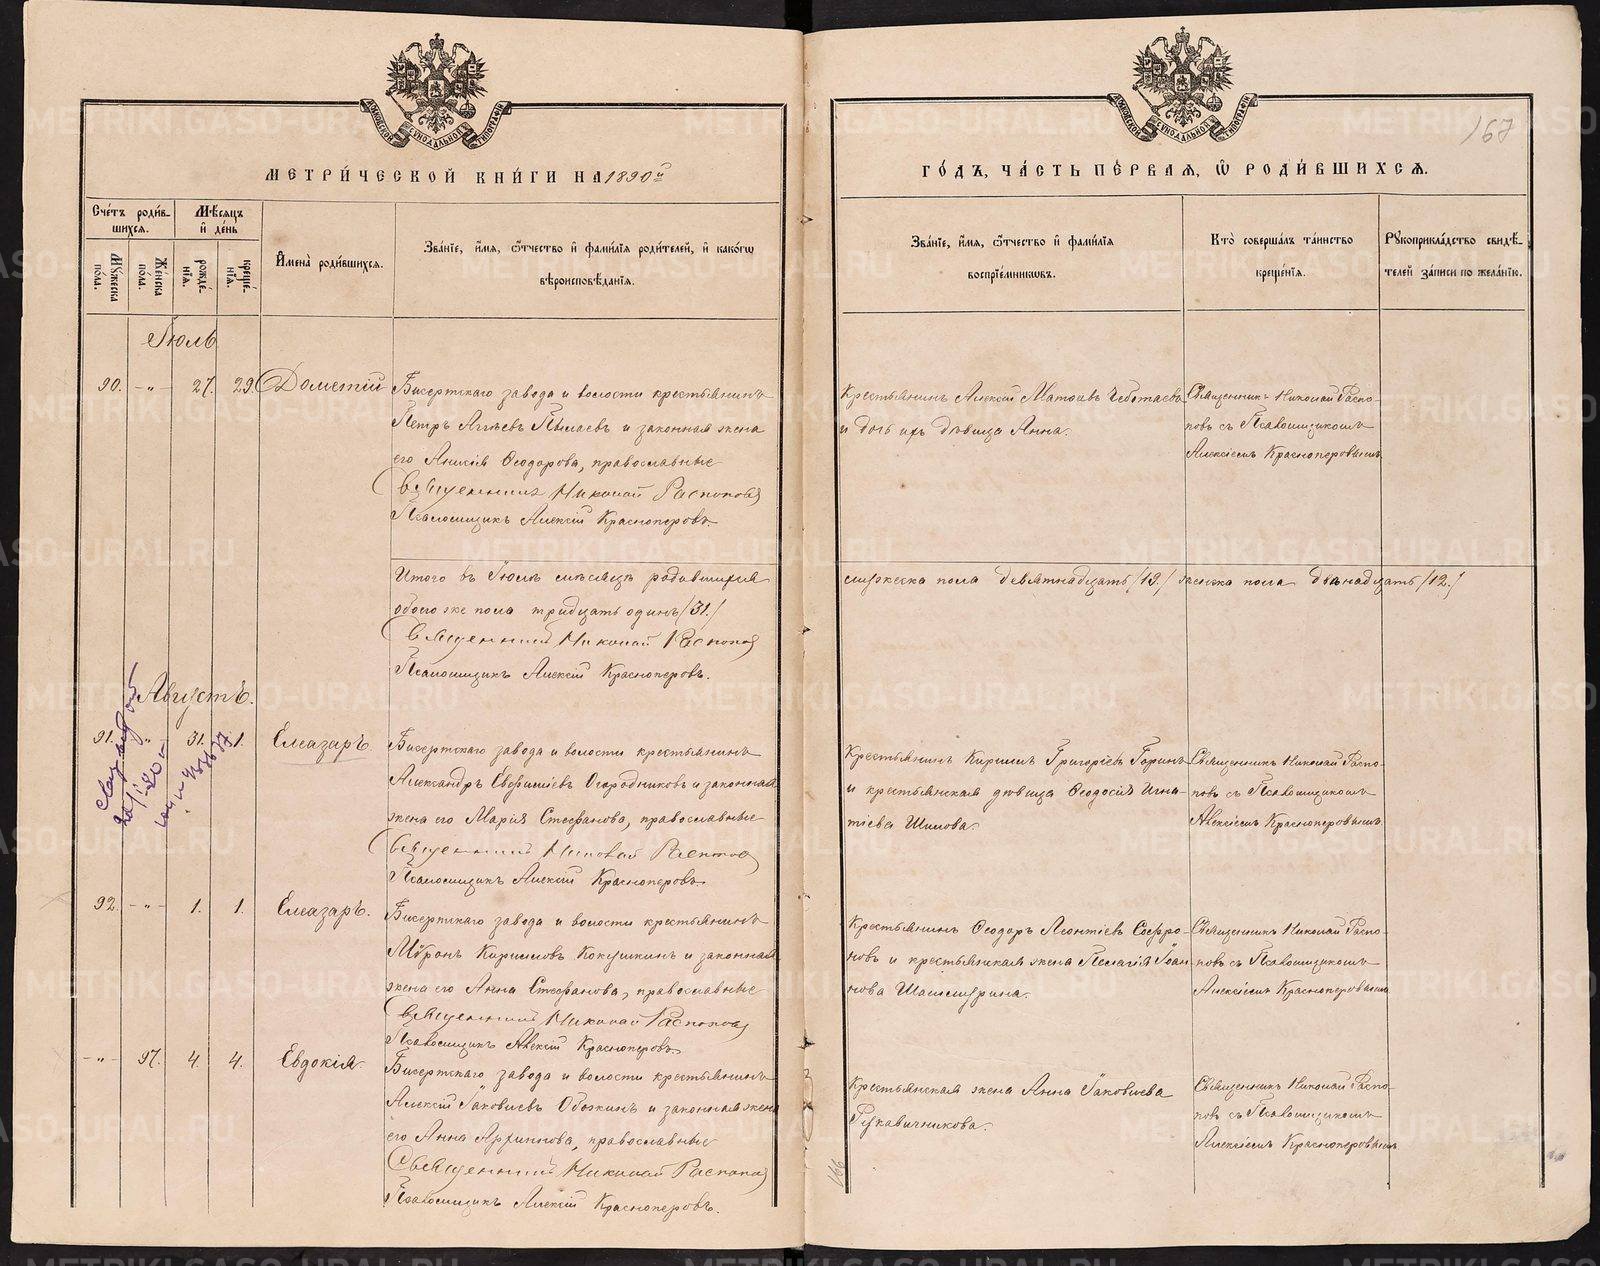 МЕТРИ́ЧЕСКОЙ КНИ́ГИ НА 1890й
Сче́тъ роди́в-
шихся.
Мѣ́сяцъ
и҆ де́нь
Му́жеска
по́ла.
Же́нска
по́ла.
рожде́-
нїя.
креще́-
нїя.
И҆мена̀ роди́вшихся.
Зва́нїе, и҆́мя, ѻ҆́тчество и҆ фами́лїя роди́телей, и҆ како́гѡ
вѣроисповѣ́данїя.
Іюль
90. -„- 27. 29. Дометій
Бисертскаго завода и волости крестьянинъ
Петръ Аггѣевъ Пылаевъ и законная жена
его Анисія Ѳеодорова, православные
Священникъ Николай Распоповъ
Псаломщикъ Алексій Красноперовъ.
Итого въ Іюлѣ мѣсяцѣ родившихся
обоего же пола тридцать одинъ /31./
Священникъ Николай Распопов
Псаломщикъ Алексій Красноперовъ.
Августъ.
91. „ 31. 1. Елеазаръ
Бисертскаго завода и волости крестьянинъ
Александръ Евфиміевъ Огородниковъ и законная
жена его Марія Стефанова, православные
Священникъ Николай Распопов
Псаломщикъ Алексій Красноперовъ
92. -„- 1. 1. Елеазаръ.
Бисертскаго завода и волости крестьянинъ
Мѷронъ Кириловъ Кокушкинъ и законная
жена его Анна Стефанова, православные
Священникъ Николай Распопов
Псаломщикъ Алексій Красноперовъ.
-„- 97. 4. 4. Евдокія
Бисертскаго завода и волости крестьянинъ
Алексій Іаковлевъ Обожинъ и законная жена
его Анна, православные
Священникъ Николай Распопов
Псаломщикъ Алексій Красноперовъ.
167
ГО́ДЪ, ЧА́СТЬ ПЕ́РВАЯ, Ѡ҆ РОДИ́ВШИХСЯ.
Зва́нїе, и҆́мя, ѻ҆́тчество и҆ фами́лїя
воспрїе́мникѡвъ.
Кто̀ соверша́лъ та́инство
креще́нїя.
Рꙋкоприкла́дство свидѣ́-
телей за́писи по жела́нїю.
Крестьянинъ Алексій Матѳіевъ Чеботаевъ
и дочь ихъ дѣвица Анна.
Священникъ Николай Распо-
повъ съ Псаломщикомъ
Алексіемъ Красноперовымъ
мужеска пола девятнадцать /19./ женска пола двѣнадцать /12./
Крестьянинъ Кириллъ Григоріевъ Горинъ
и крестьянская дѣвица Ѳеодосія Игна-
тіева Шилова.
Священникъ Николай Распо-
повъ съ Псаломщикомъ
Алексіемъ Красноперовымъ.
Крестьянинъ Ѳеодоръ Леонтіевъ Софро-
новъ и крестьянская жена Пелагія Іоан-
нова Шаймурина.
Священникъ Николай Распо-
повъ съ Псаломщикомъ
Алексіемъ Красноперовымъ
Крестьянская жена Анна Іаковлева
Рукавичникова.
Священникъ Николай Распо-
повъ съ Псаломщикомъ
Алексіемъ Красноперовымъ
166
METRIKI.GASO-URAL.RU